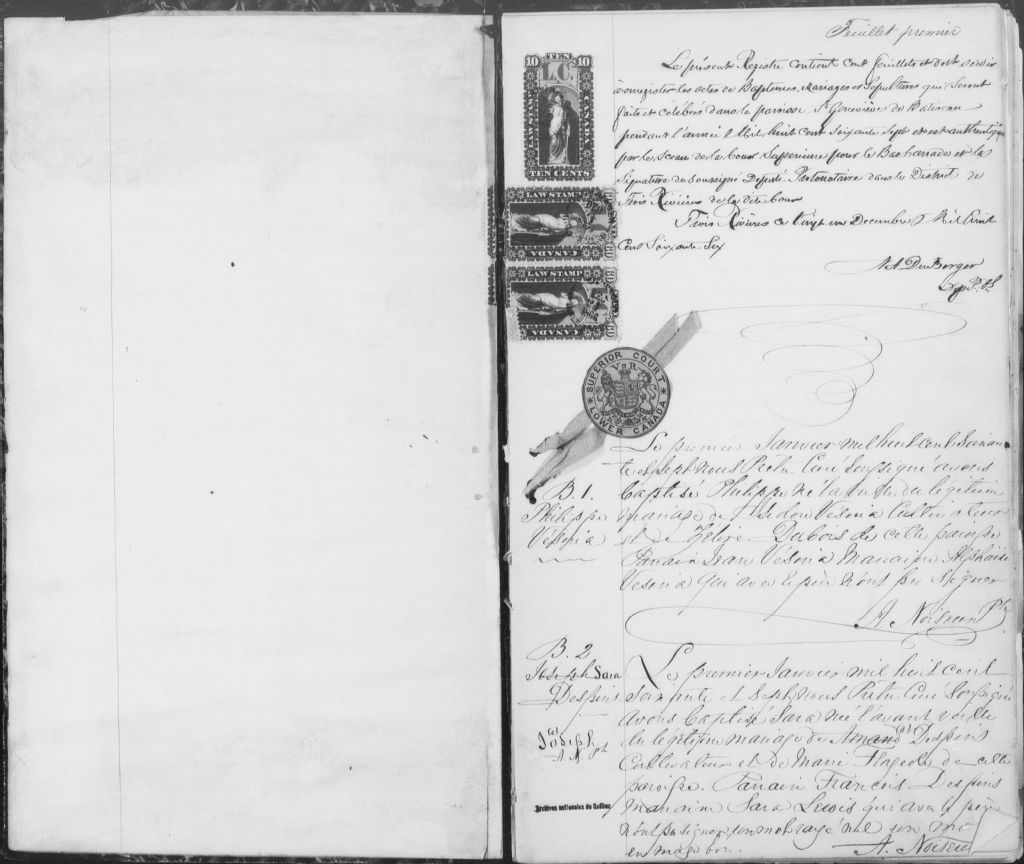 Feuillet premier
Le présent Registre contient cent feuillets et doit servir
à enregistrer les actes de Baptemes, Mariages et Sepultures qui seront
faits et célébrés dans la paroisse Ste Geneviève de Batiscan
pendant l'année Mil huit cent soixante Sept et est authentiqué
par le Sceau de la Cour Superieure pour le Bas Canada et la
Signature du Soussigné Deputé Protonotaire dans le District de
Trois Rivières de la dite Cour
Trois Rivières ce Vingt un Decembre Mil huit
Cent Soixante Six
TEN
10 10
L.C.
LAW STAMP
CANADA
TEN CENTS
LAW STAMP
CANADA
LAW STAMP
CANADA
SUPERIOR COURT
V R
LOWER CANADA
B. 1.
Philippe
Vesina
Le premier Janvier mil huit cent soixan
te et sept nous Prêtre Curé Soussigné avons
Baptisé Philippe né la veille du légitime
mariage de Vesina Cultivateur
et de Dubois de cette paroisse
Parrain Jean Vesina Marraine
Vesina qui avec le père n'ont pu signer
B. 2
Joseph Sara
Despins
Joseph
Le premier Janvier mil huit cent
soixante et sept nous Prêtre Curé Soussigné
avons baptisé Sara né l'avant veille
du légitime mariage de Amand Despins
Cultivateur et de Marie Flageole de cette
paroisse. Parrain François Despins
Marraine Sara Lewis qui avec le père
n'ont pu signer, un mot rayé nul un mot
en marge bon.
Archives nationales du Québec